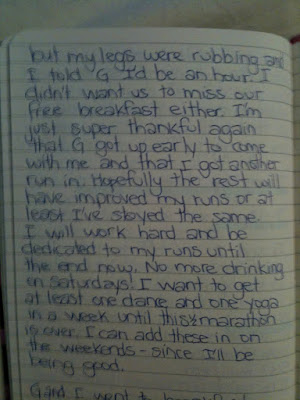 but my legs were rubbing and
I told G I'd be an hour. I
didn't want us to miss our
free breakfast either. I'm
just super thankful again
that G got up early to come
with me and that I got another
run in. Hopefully the rest will
have improved my runs or at
least I've stayed the same.
I will work hard and be
dedicated to my runs until
the end now. No more drinking
on Saturdays! I want to get
at least one dance and one yoga
in a week until this ½ marathon
is over. I can add these in on
the weekends - since I'll be
being good.
I went to